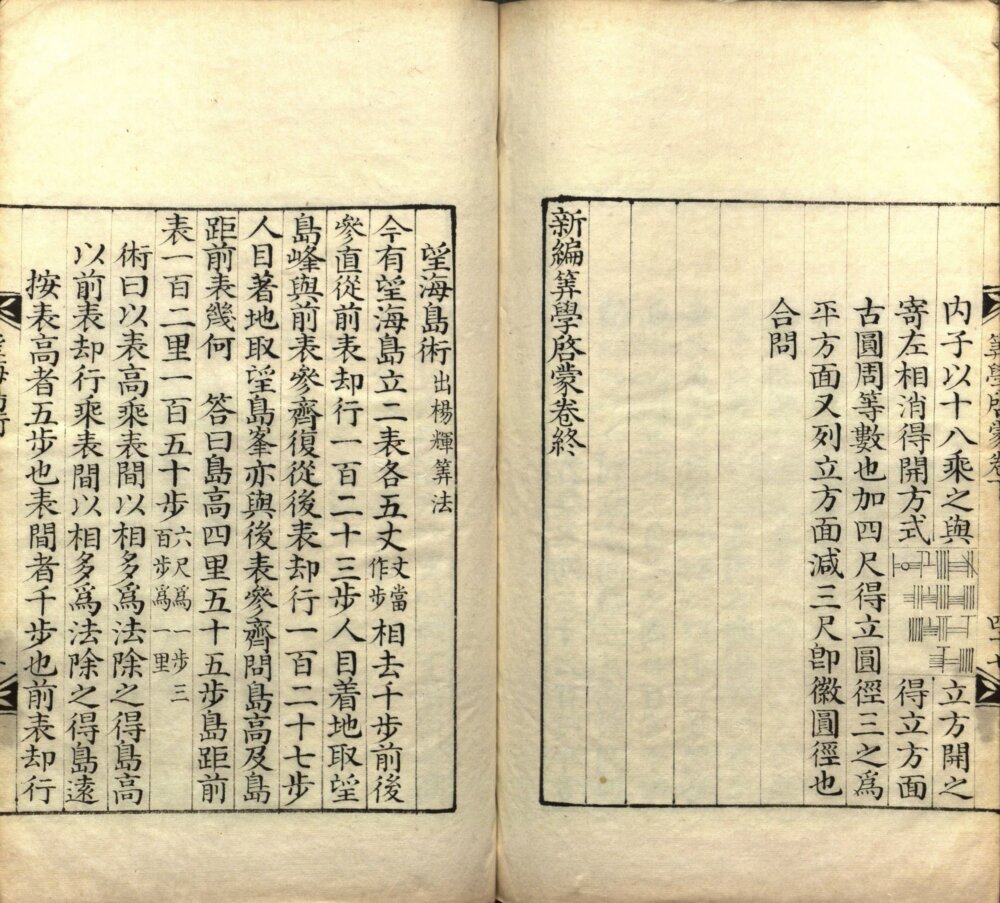 內子以十八乘之與
寄左相消得開方式
立方開之
得立方面
古圓周等數也加四尺得立圓徑三之爲
平方面又列立方面減三尺卽徽圓徑也
合問
新編筭學啓蒙卷終
望海島術出楊輝筭法
今有望海島立二表各五丈丈當作步相去千步前後
參直從前表却行一百二十三步人目着地取望
島峰與前表參齊復從後表却行一百二十七步
人目著地取望島峯亦與後表參齊問島高及島
距前表幾何　答曰島高四里五十五步島距前
表一百二里一百五十步六尺爲一步三百步爲一里
術曰以表高乘表間以相多爲法除之得島高
以前表却行乘表間以相多爲法除之得島遠
按表高者五步也表間者千步也前表却行